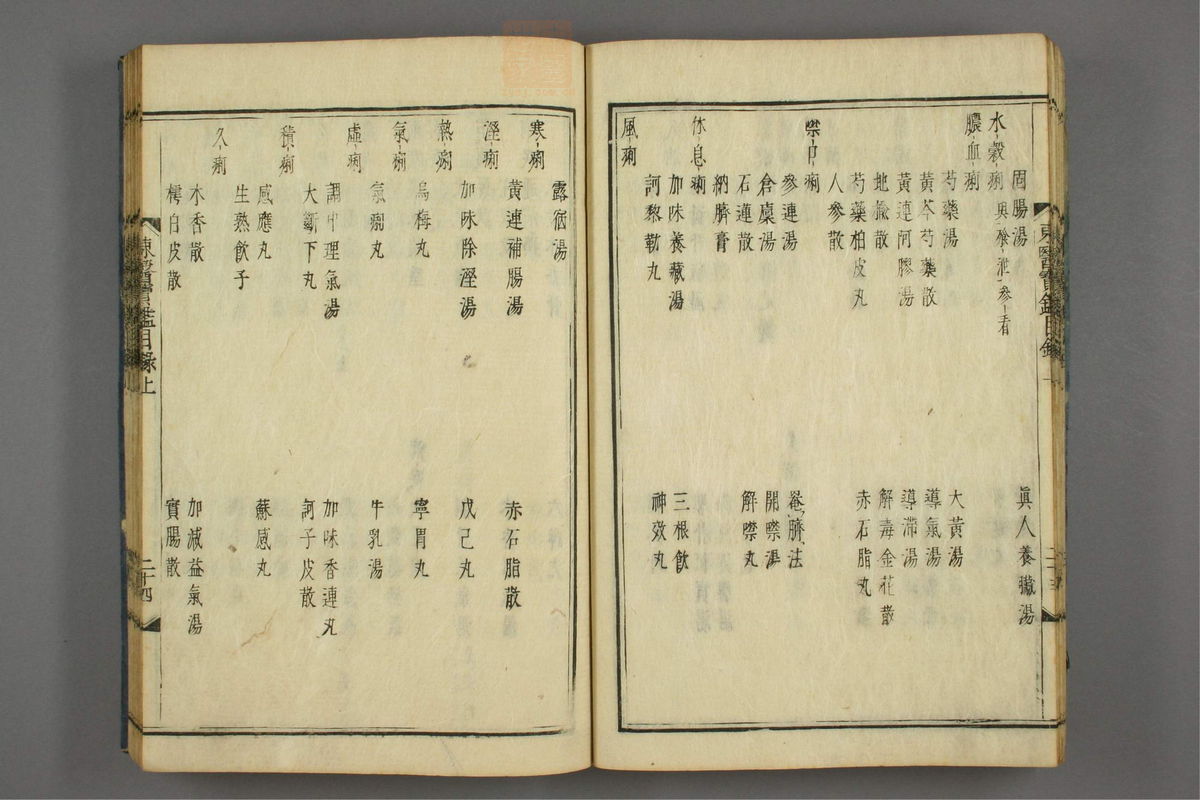 固腸湯　眞人養臟湯
水穀痢　與飱泄參看
膿血痢
芍藥湯　大黃湯
黃芩芍藥散　導氣湯
黃連阿膠湯　導滯湯
地楡散　解毒金花散
芍藥柏皮丸　赤石脂丸
人參散
噤口痢
參連湯　菴臍法
倉廩湯　開噤湯
石蓮散　解噤丸
納臍膏
休息痢
加味養藏湯　三根飮
訶黎勒丸　神效丸
風痢
露宿湯
寒痢
黃連補腸湯　赤石脂散
溼痢
加味除溼湯　戊己丸
熱痢
烏梅丸　寧胃丸
氣痢
氣痢丸　牛乳湯
虛痢
調中理氣湯　加味香連丸
大斷下丸　訶子皮散
積痢
感應丸　蘇感丸
生熟飮子
久痢
木香散　加減益氣湯
樗白皮散　實腸散
東醫寶鑑目錄上　二十四